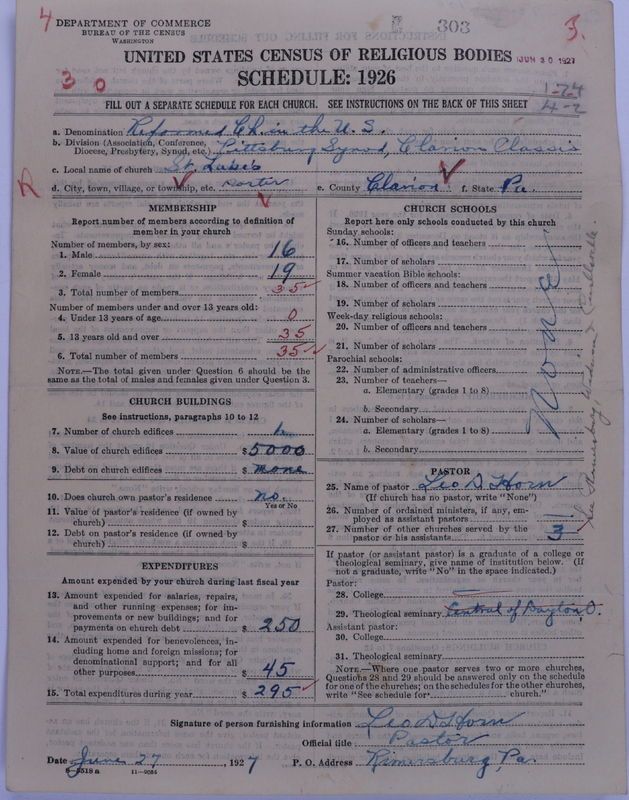 4 DEPARTMENT OF COMMERCE
BUREAU OF THE CENSUS
WASHINGTON
303
3.
UNITED STATES CENSUS OF RELIGIOUS BODIES JUN 30 1927
SCHEDULE: 1926
3 0
1-74
4-2
FILL OUT A SEPARATE SCHEDULE FOR EACH CHURCH. SEE INSTRUCTIONS ON THE BACK OF THIS SHEET
a. Denomination Reformed Ch. in the U.S.
b. Division (Association, Conference, Diocese, Presbytery, Synod, etc.) Pittsburg Synod, Clarion Classis
c. Local name of church St. Lukes
R d. City, town, village, or township, etc. Porter e. County Clarion f. State Pa.
MEMBERSHIP
Report number of members according to definition of
member in your church
Number of members, by sex:
1. Male 16
2. Female 19
3. Total number of members 35
Number of members under and over 13 years old:
4. Under 13 years of age 0
5. 13 years old and over 35
6. Total number of members 35
NOTE.—The total given under Question 6 should be the
same as the total of males and females given under Question 3.
CHURCH BUILDINGS
See instructions, paragraphs 10 to 12
7. Number of church edifices
8. Value of church edifices $5000
9. Debt on church edifices $ none
10. Does church own pastor's residence no.
Yes or No
11. Value of pastor's residence (if owned by
church) $
12. Debt on pastor's residence (if owned by
church) $
EXPENDITURES
Amount expended by your church during last fiscal year
13. Amount expended for salaries, repairs,
and other running expenses; for im-
provements or new buildings; and for
payments on church debt $ 250
14. Amount expended for benevolences, in-
cluding home and foreign missions; for
denominational support; and for all
other purposes $ 45
15. Total expenditures during year $ 295
CHURCH SCHOOLS
Report here only schools conducted by this church
Sunday schools:
16. Number of officers and teachers
17. Number of scholars
Summer vacation Bible schools:
18. Number of officers and teachers
19. Number of scholars
Week-day religious schools:
20. Number of officers and teachers
21. Number of scholars
Parochial schools:
22. Number of administrative officers
23. Number of teachers—
a. Elementary (grades 1 to 8)
b. Secondary
24. Number of scholars—
a. Elementary (grades 1 to 8)
b. Secondary
None
PASTOR
25. Name of pastor Leo D Horn
(If church has no pastor, write "None")
26. Number of ordained ministers, if any, em-
ployed as assistant pastors —
27. Number of other churches served by the
pastor or his assistants 3
If pastor (or assistant pastor) is a graduate of a college or
theological seminary, give name of institution below. (If
not a graduate, write "No" in the space indicated.)
Pastor:
28. College —
29. Theological seminary Central of Dayton, O.
Assistant pastor:
30. College
31. Theological seminary
NOTE.—Where one pastor serves two or more churches,
Questions 28 and 29 should be answered only on the schedule
for one of the churches; on the schedules for the other churches,
write "See schedule for church."
Signature of person furnishing information Leo D Horn
Official title Pastor
Date June 27, 1927 P. O. Address Rimersburg, Pa.
8-5518 a 11-9034